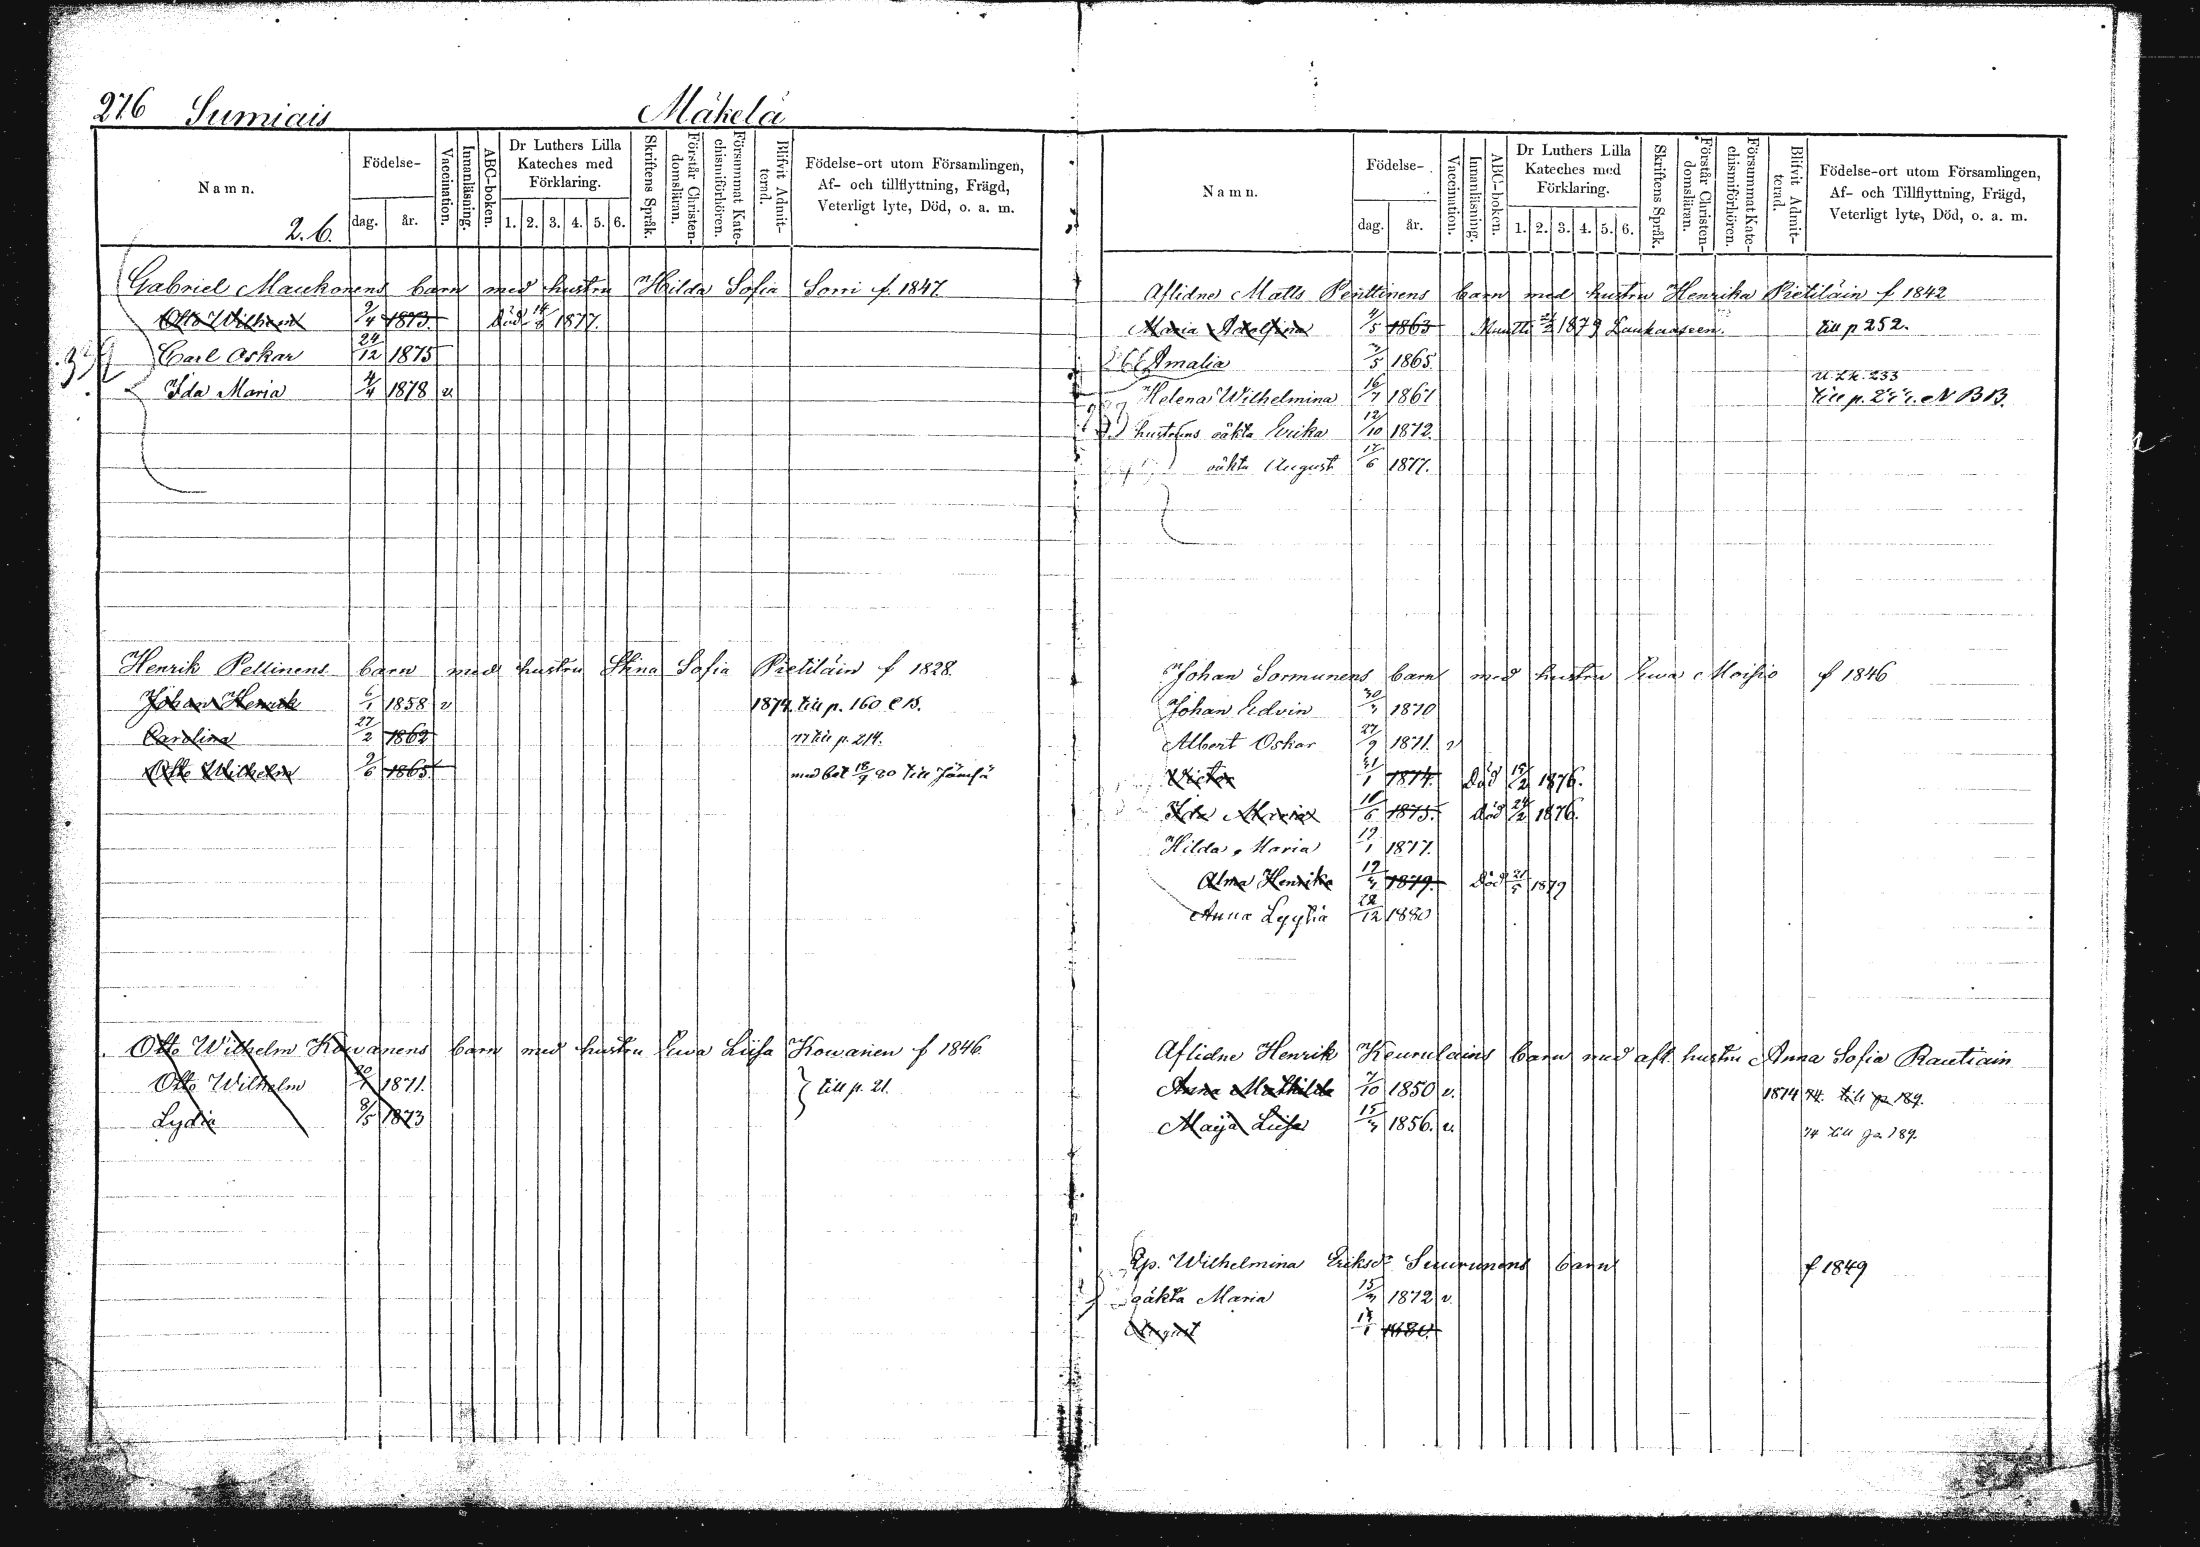 276 Sumiais Mäkelä
Namn.
Födelse-
dag. år.
Vaccination.
Innanläsning.
ABC-boken.
Dr Luthers Lilla
Kateches med
Förklaring.
1. 2. 3. 4. 5. 6.
Skriftens Språk.
Förstår Christen-
domsläran.
Försummat Kate-
chismiförhören.
Blifvit Admit-
terad.
Födelse-ort utom Församlingen,
Af- och tillflyttning, Frägd,
Veterligt lyte, Död, o. a. m.
2. 6.
Gabriel Maukonens barn med hustru Hilda Sofia Sorri f. 1847.
Otto Wilhelm 9/4 1873. Död 1877.
Carl Oskar 24/12 1875
Ida Maria 4/4 1878 v
Henrik Pellinens barn med hustru Stina Sofia Pietiläin f 1828.
Johan Henrik 6/1 1858 v 1874. till p. 160 C B.
Carolina 27/2 1862 77 till p. 214.
Otto Wilhelm 9/6 1865 med bet 18/9 80 till Jämsä
Otto Wilhelm Kowanens barn med hustru Ewa Liisa Kowanen f 1846
Otto Wilhelm 1871. } till p. 21.
Lydia 8/5 1873
Namn.
Födelse-
dag. år.
Vaccination.
Innanläsning.
ABC-boken.
Dr Luthers Lilla
Kateches med
Förklaring.
1. 2. 3. 4. 5. 6.
Skriftens Språk.
Förstår Christen-
domsläran.
Försummat Kate-
chismiförhören.
Blifvit Admit-
terad.
Födelse-ort utom Församlingen,
Af- och Tillflyttning, Frägd,
Veterligt lyte, Död, o. a. m.
Aflidne Matts Penttinens barn med hustru Henrika Pietiläin f 1842
Maria Adolfina 4/5 1863 Muutti 1879 Laukaaseen. till p 252.
Amalia 1865.
U. L.k. 233
Helena Wilhelmina 16/7 1867 till p. N B B.
hustruns oäkta Erika 12/10 1872.
oäkta August 17/6 1877.
Johan Sormunens barn med hustru Ewa Moisio f 1846
Johan Edvin 1870
Albert Oskar 27/9 1871. v
Wictor 21/1 1874. Död 15/2 1876.
Ida Maria 1875. död 24/2 1876.
Hilda Maria 19/1 1877.
Alma Henrika 1879. död 1879
Anna Lyylia 22/12 1880
Aflidne Henrik Keurulains barn med afl. hustru Anna Sofia Rautiain
Anna Mathilda 7/10 1850 v. 1874 74. till p 189.
Maija Liisa 1856. v. 74 till p. 189.
Qp. Wilhelmina Eriksdr Suurunens barn f 1849
oäkta Maria 1872 v.
August 1880.